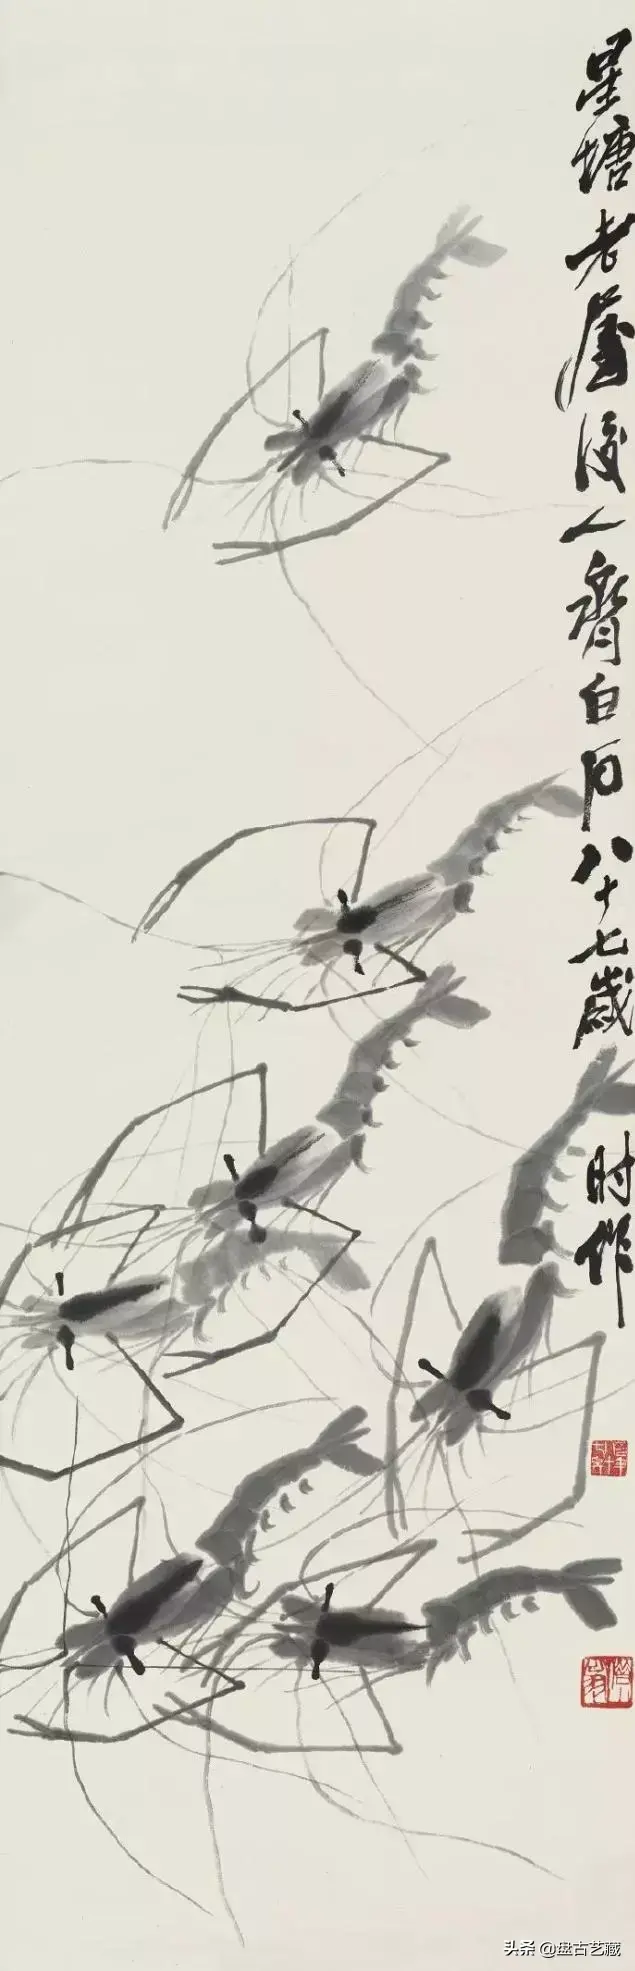 星塘老屋后人齊白石八十七歲
时作
头条 @盘古艺藏